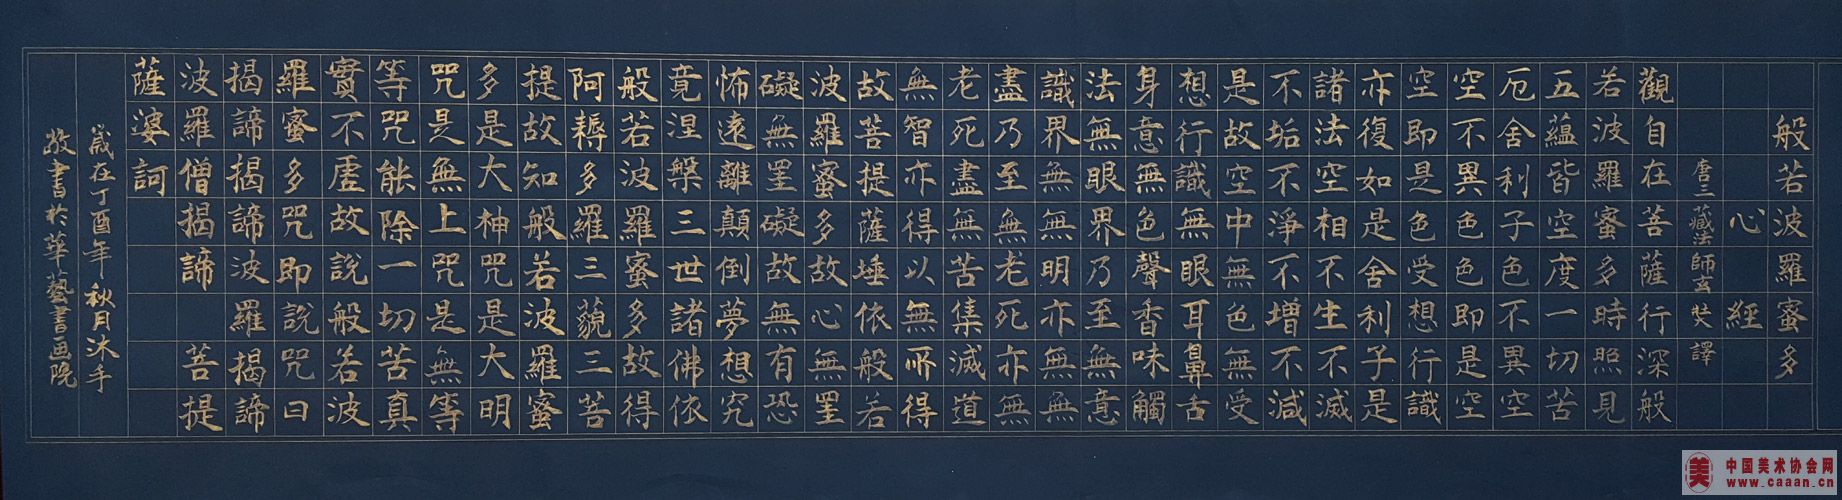 般若波羅蜜多
心經
唐三藏法師玄奘譯
觀自在菩薩行深般
若波羅蜜多時照見
五蘊皆空度一切苦
厄舍利子色不異空
空不異色色即是空
空即是色受想行識
亦復如是舍利子是
諸法空相不生不滅
不垢不淨不增不減
是故空中無色無受
想行識無眼耳鼻舌
身意無色聲香味觸
法無眼界乃至無意
識界無無明亦無無
盡乃至無老死亦無
老死盡無苦集滅道
無智亦得以無所得
故菩提薩埵依般若
波羅蜜多故心無罣
礙無罣礙故無有恐
怖遠離顛倒夢想究
竟涅槃三世諸佛依
般若波羅蜜多故得
阿耨多羅三藐三菩
提故知般若波羅蜜
多是大神咒是大明
咒是無上咒是無等
等咒能除一切苦真
實不虛故說般若波
羅蜜多咒即說咒曰
揭諦揭諦波羅揭諦
波羅僧揭諦 菩提
薩婆訶
歲在丁酉年秋月沐手
敬書於華藝書画院
美 中国美术协会网
www.caaan.cn